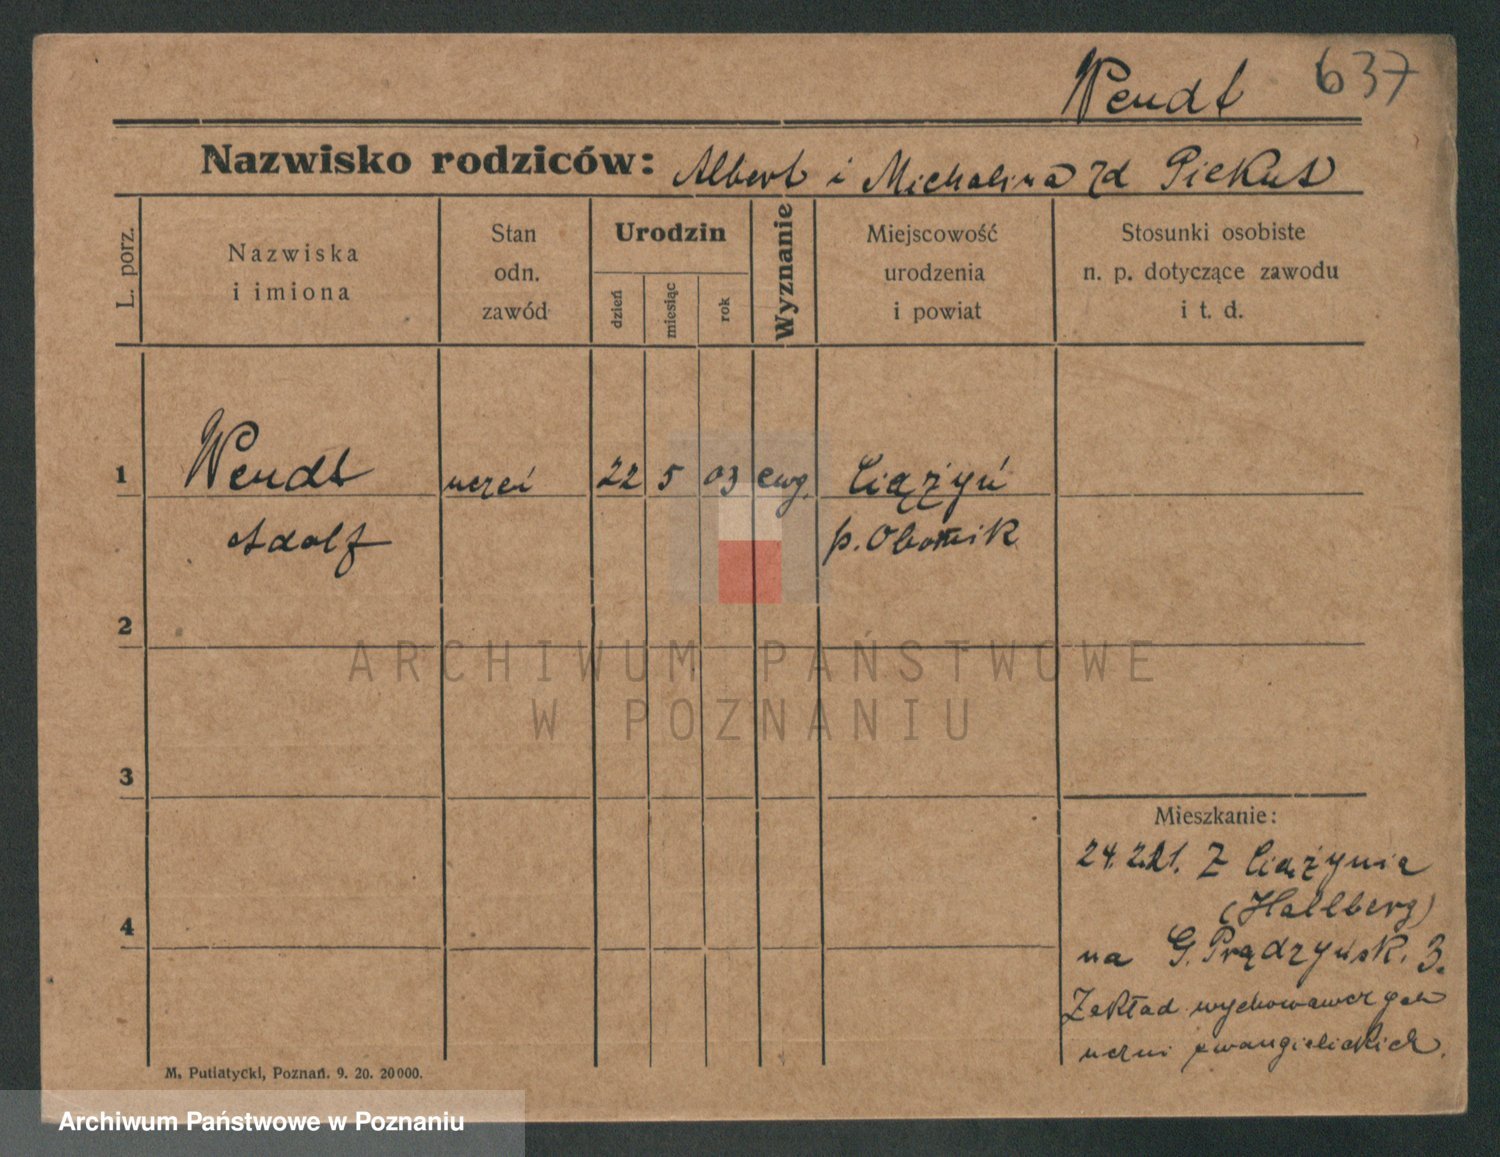 Wendt 637
Nazwisko rodziców: Albert i Michalina zd Piekut
L. porz.
Nazwiska
i imiona
Stan
odn.
zawód
Urodzin
dzień
miesiąc
rok
Wyznanie
Miejscowość
urodzenia
i powiat
Stosunki osobiste
n. p. dotyczące zawodu
i t. d.
1 Wendt uczeń 22 5 03 ewg. Ciążyń
Adolf p. Obornik
2
ARCHIWUM PAŃSTWOWE
W POZNANIU
3
Mieszkanie:
24. 2. 21. Z Ciążynia
(Hallberg)
4
na G. Prądzyńsk. 3.
Zakład wychowawczy
uczni ewangielickich.
M. Putiatycki, Poznań. 9. 20. 20000.
Archiwum Państwowe w Poznaniu